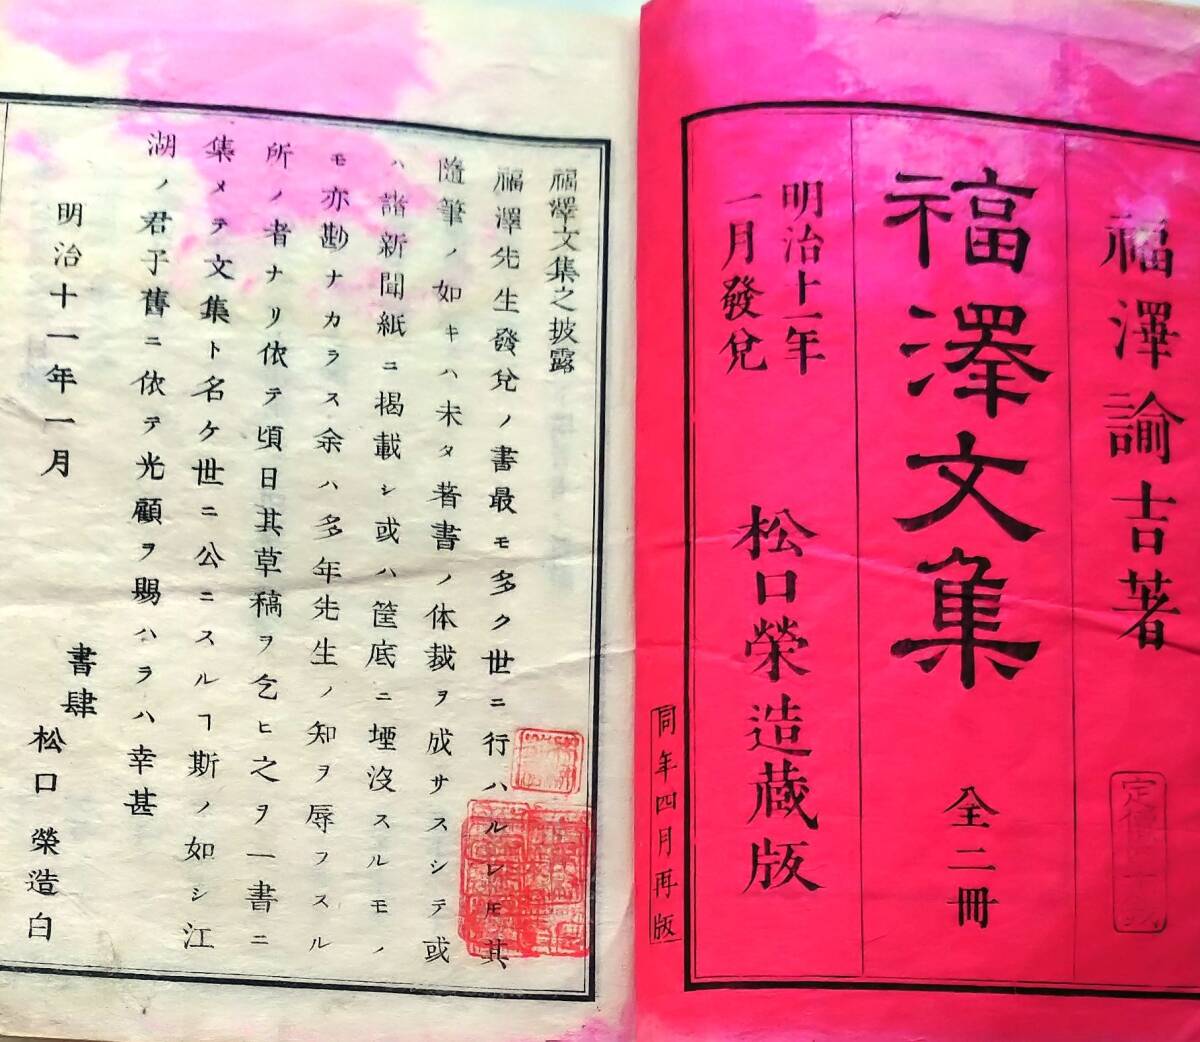 福澤諭吉著
福澤文集
全二冊
明治十一年
一月發兌
松口榮造藏版
同年四月再版
福澤文集之披露
福澤先生發兌ノ書最モ多ク世ニ行ハルレ𪜈其
隨筆ノ如キハ未タ著書ノ体裁ヲ成サスシテ或
ハ諸新聞紙ニ掲載シ或ハ筐底ニ堙沒スルモノ
モ亦尠ナカラス余ハ多年先生ノ知ヲ辱フスル
所ノ者ナリ依テ頃日其草稿ヲ乞ヒ之ヲ一書ニ
集メテ文集ト名ケ世ニ公ニスルヿ斯ノ如シ江
湖ノ君子舊ニ依テ光顧ヲ賜ハラハ幸甚
明治十一年一月
書肆
松口榮造白